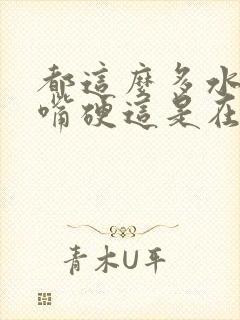 都這麼多水
嘴硬這是在
青木U平